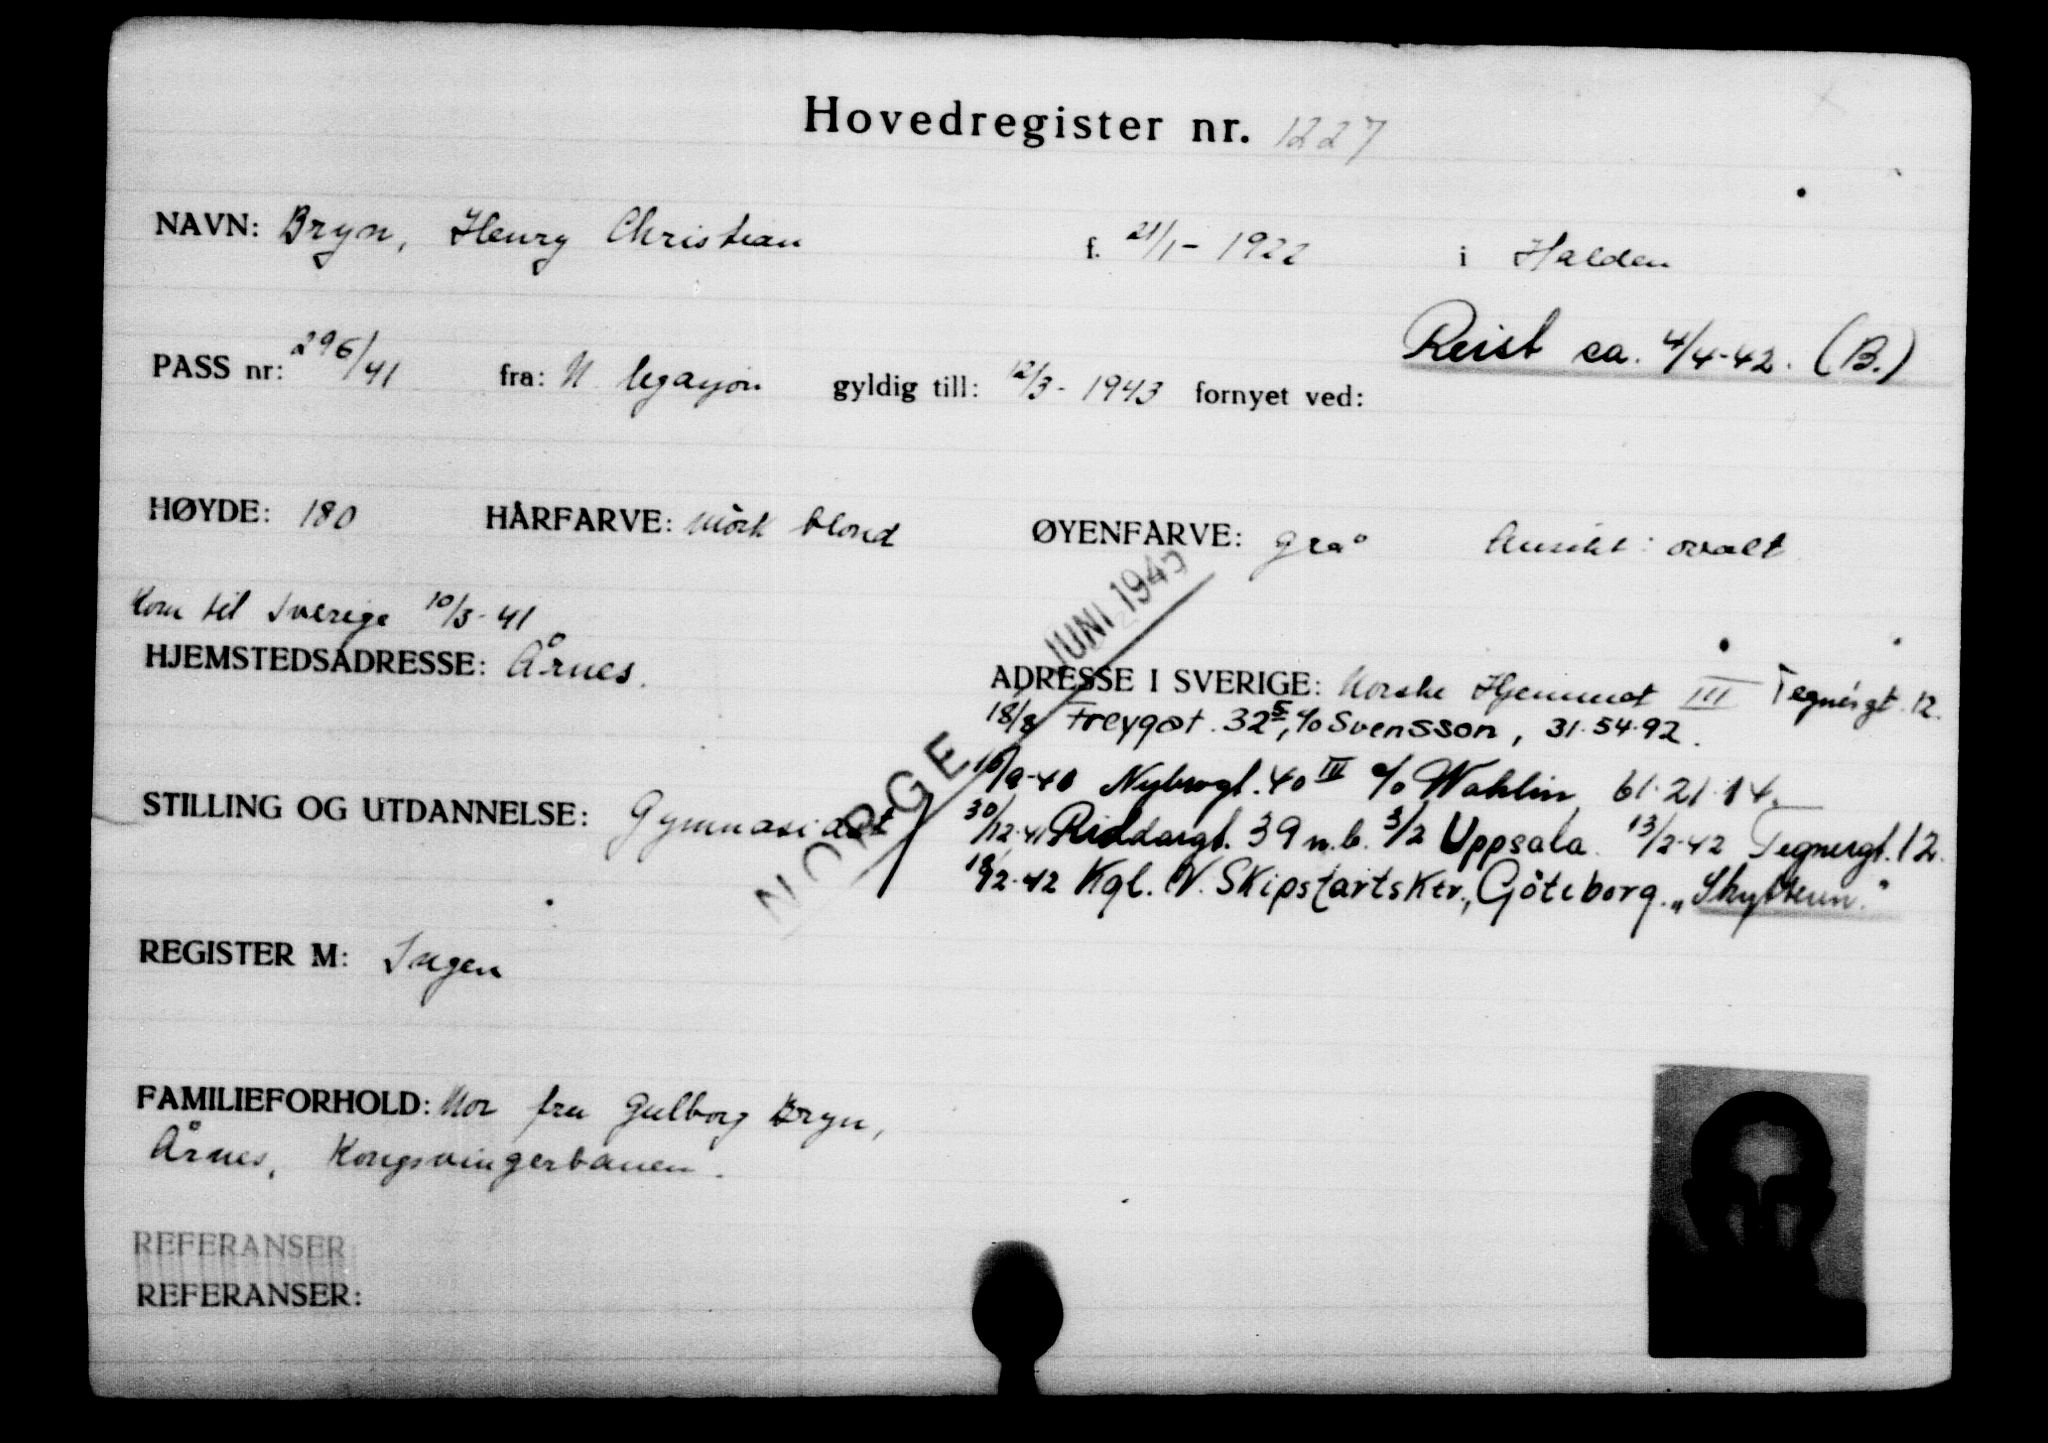 Hovedregister nr. 1227
NAVN: Bryn, Henry Christian f. 21/1 - 1922 i Halden
Reist ca. 4/4-42. (B.)
PASS nr: 296/41 fra: N. legasjon gyldig till: 12/3 - 1943 fornyet ved:
HØYDE: 180 HÅRFARVE: mörk blond ØYENFARVE: grå Ansikt: ovalt
Kom til Sverige 10/3-41
JUNI 1945
HJEMSTEDSADRESSE: Årnes. ADRESSE I SVERIGE: Norske Hjemmet III Tegnérgt. 12.
18/8 Freygat. 32 5, c/o Svensson, 31.54.92.
16/9-41 Nybrogt. 40 IV c/o Wahlin 61.21.14.
STILLING OG UTDANNELSE: Gymnasiast
30/12-41 Riddargt. 39 n.b. 3/2 Uppsala. 13/2-42 Tegnergt. 12.
18/2-42 Kgl. N. Skipsfartsktr., Göteborg. „Skytteren."
NORGE
REGISTER M: Ingen
FAMILIEFORHOLD: Mor fru Gulborg Bryn,
Årnes, Kongsvingerbanen.
REFERANSER
REFERANSER: